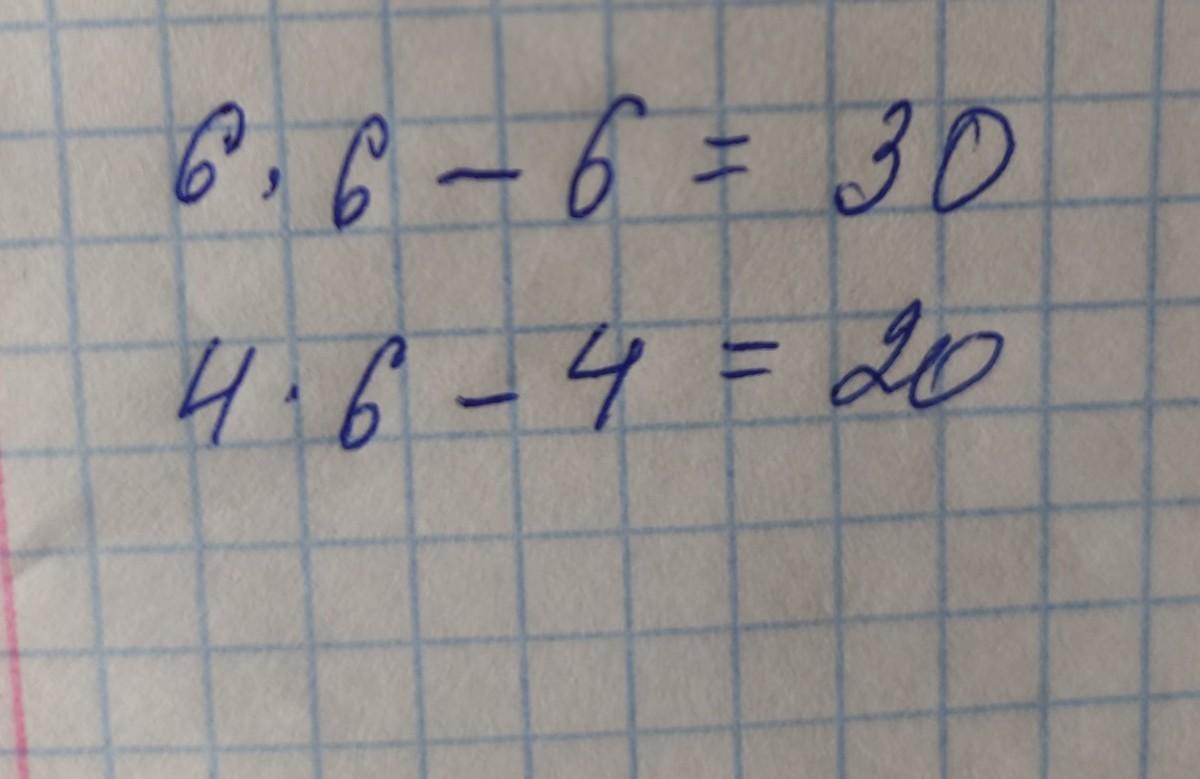 6 · 6 - 6 = 30
4 · 6 - 4 = 20